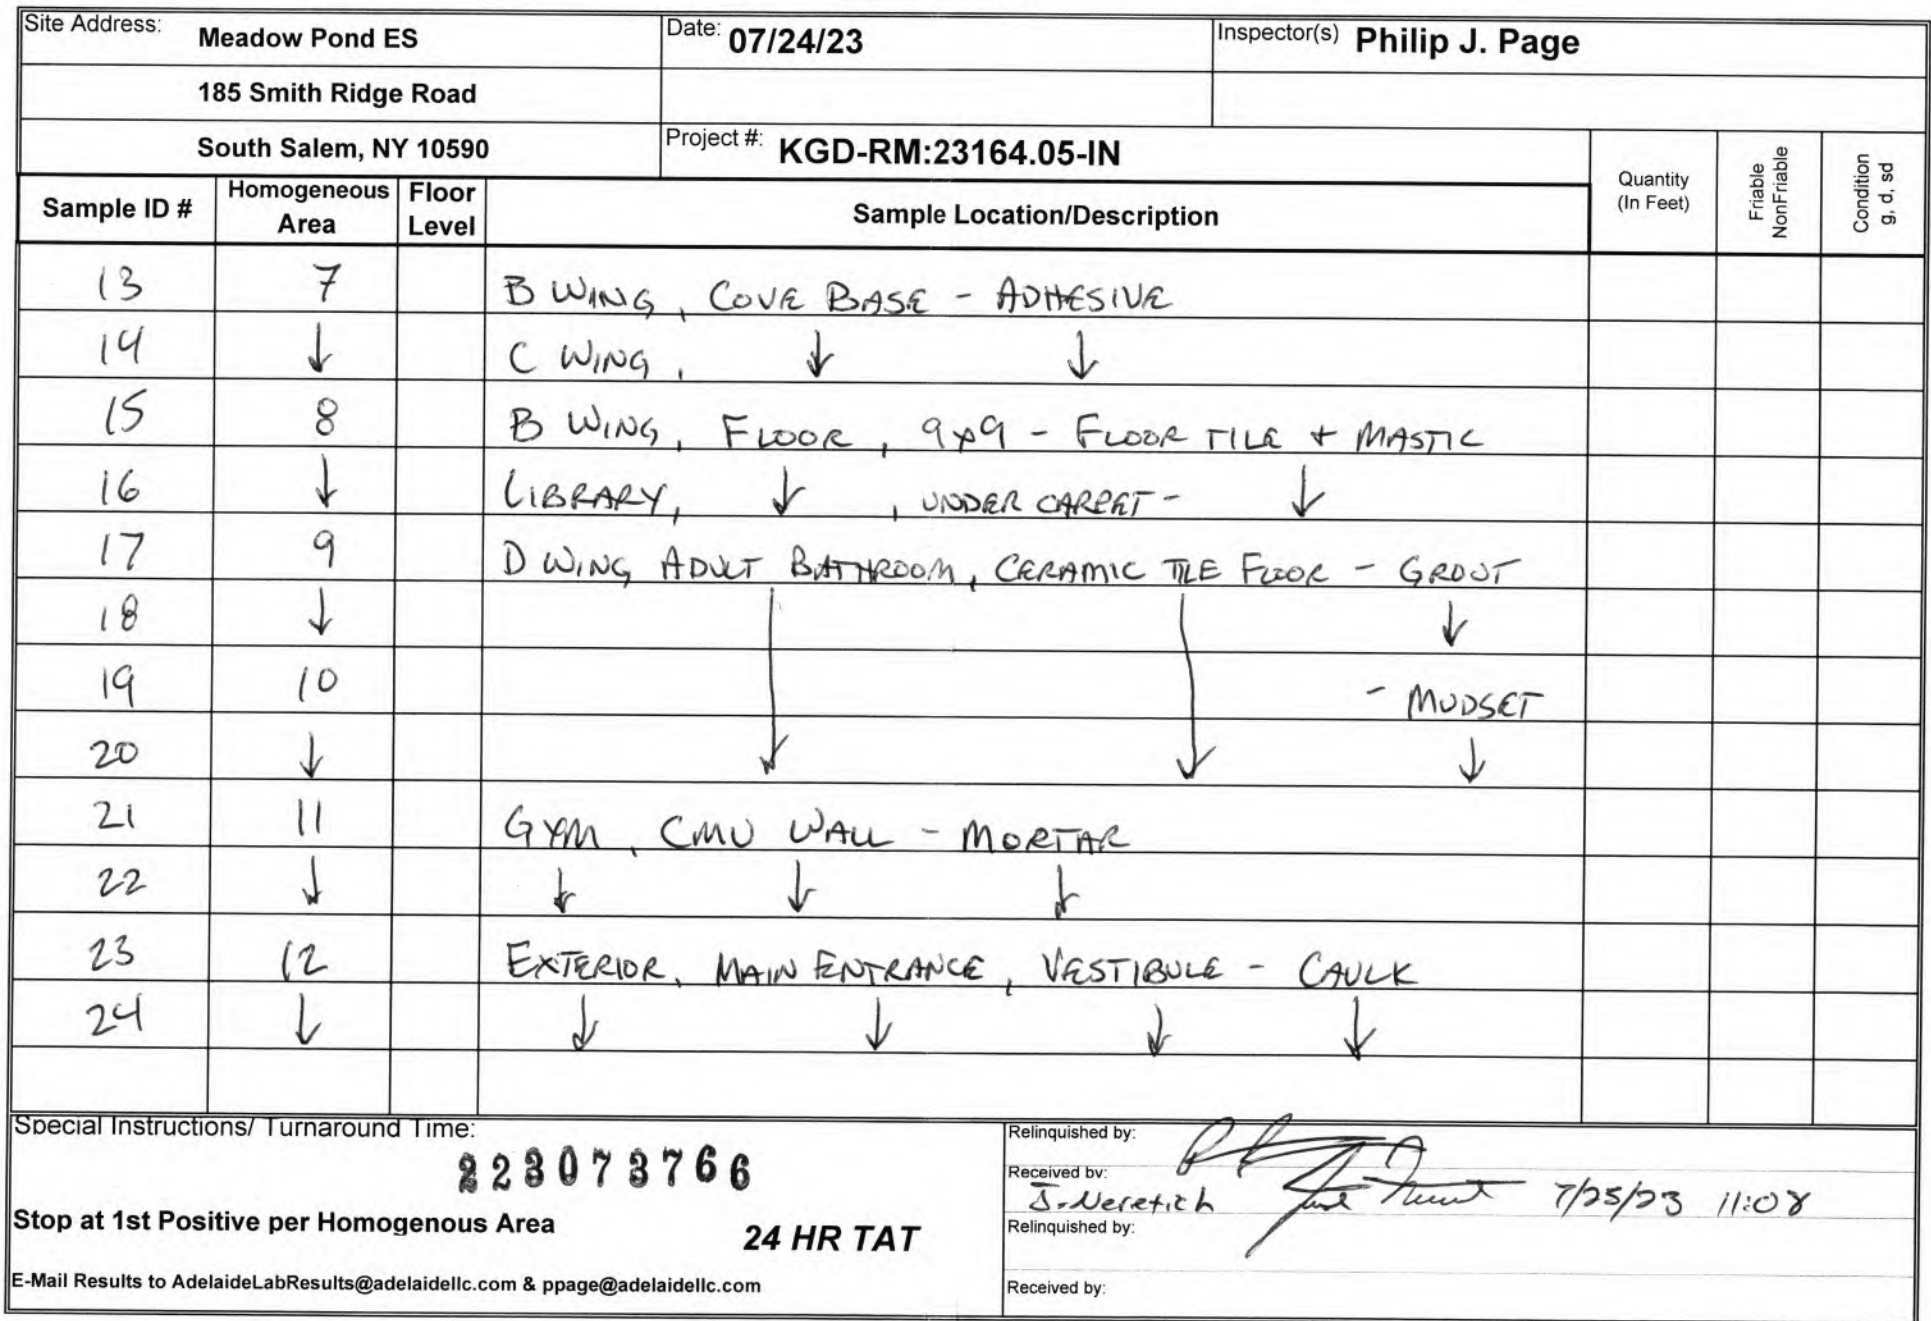 Site Address: Meadow Pond ES Date: 07/24/23 Inspector(s) Philip J. Page
185 Smith Ridge Road
South Salem, NY 10590 Project #: KGD-RM:23164.05-IN
Sample ID # Homogeneous Area Floor Level Sample Location/Description Quantity (In Feet) Friable NonFriable Condition g, d, sd
13 7 B WING, COVE BASE - ADHESIVE
14 ↓ C WING, ↓ ↓
15 8 B WING, FLOOR, 9x9 - FLOOR TILE + MASTIC
16 ↓ LIBRARY, ↓, UNDER CARPET - ↓
17 9 D WING ADULT BATHROOM, CERAMIC TILE FLOOR - GROUT
18 ↓ ↓
19 10 - MUDSET
20 ↓ ↓ ↓ ↓
21 11 GYM, CMU WALL - MORTAR
22 ↓ ↓ ↓ ↓
23 12 EXTERIOR, MAIN ENTRANCE, VESTIBULE - CAULK
24 ↓ ↓ ↓ ↓ ↓
Special Instructions/ Turnaround Time:
223073766
Stop at 1st Positive per Homogenous Area
24 HR TAT
E-Mail Results to AdelaideLabResults@adelaidellc.com & ppage@adelaidellc.com
Relinquished by:
Received by:
J. Neretich 7/25/23 11:08
Relinquished by:
Received by: